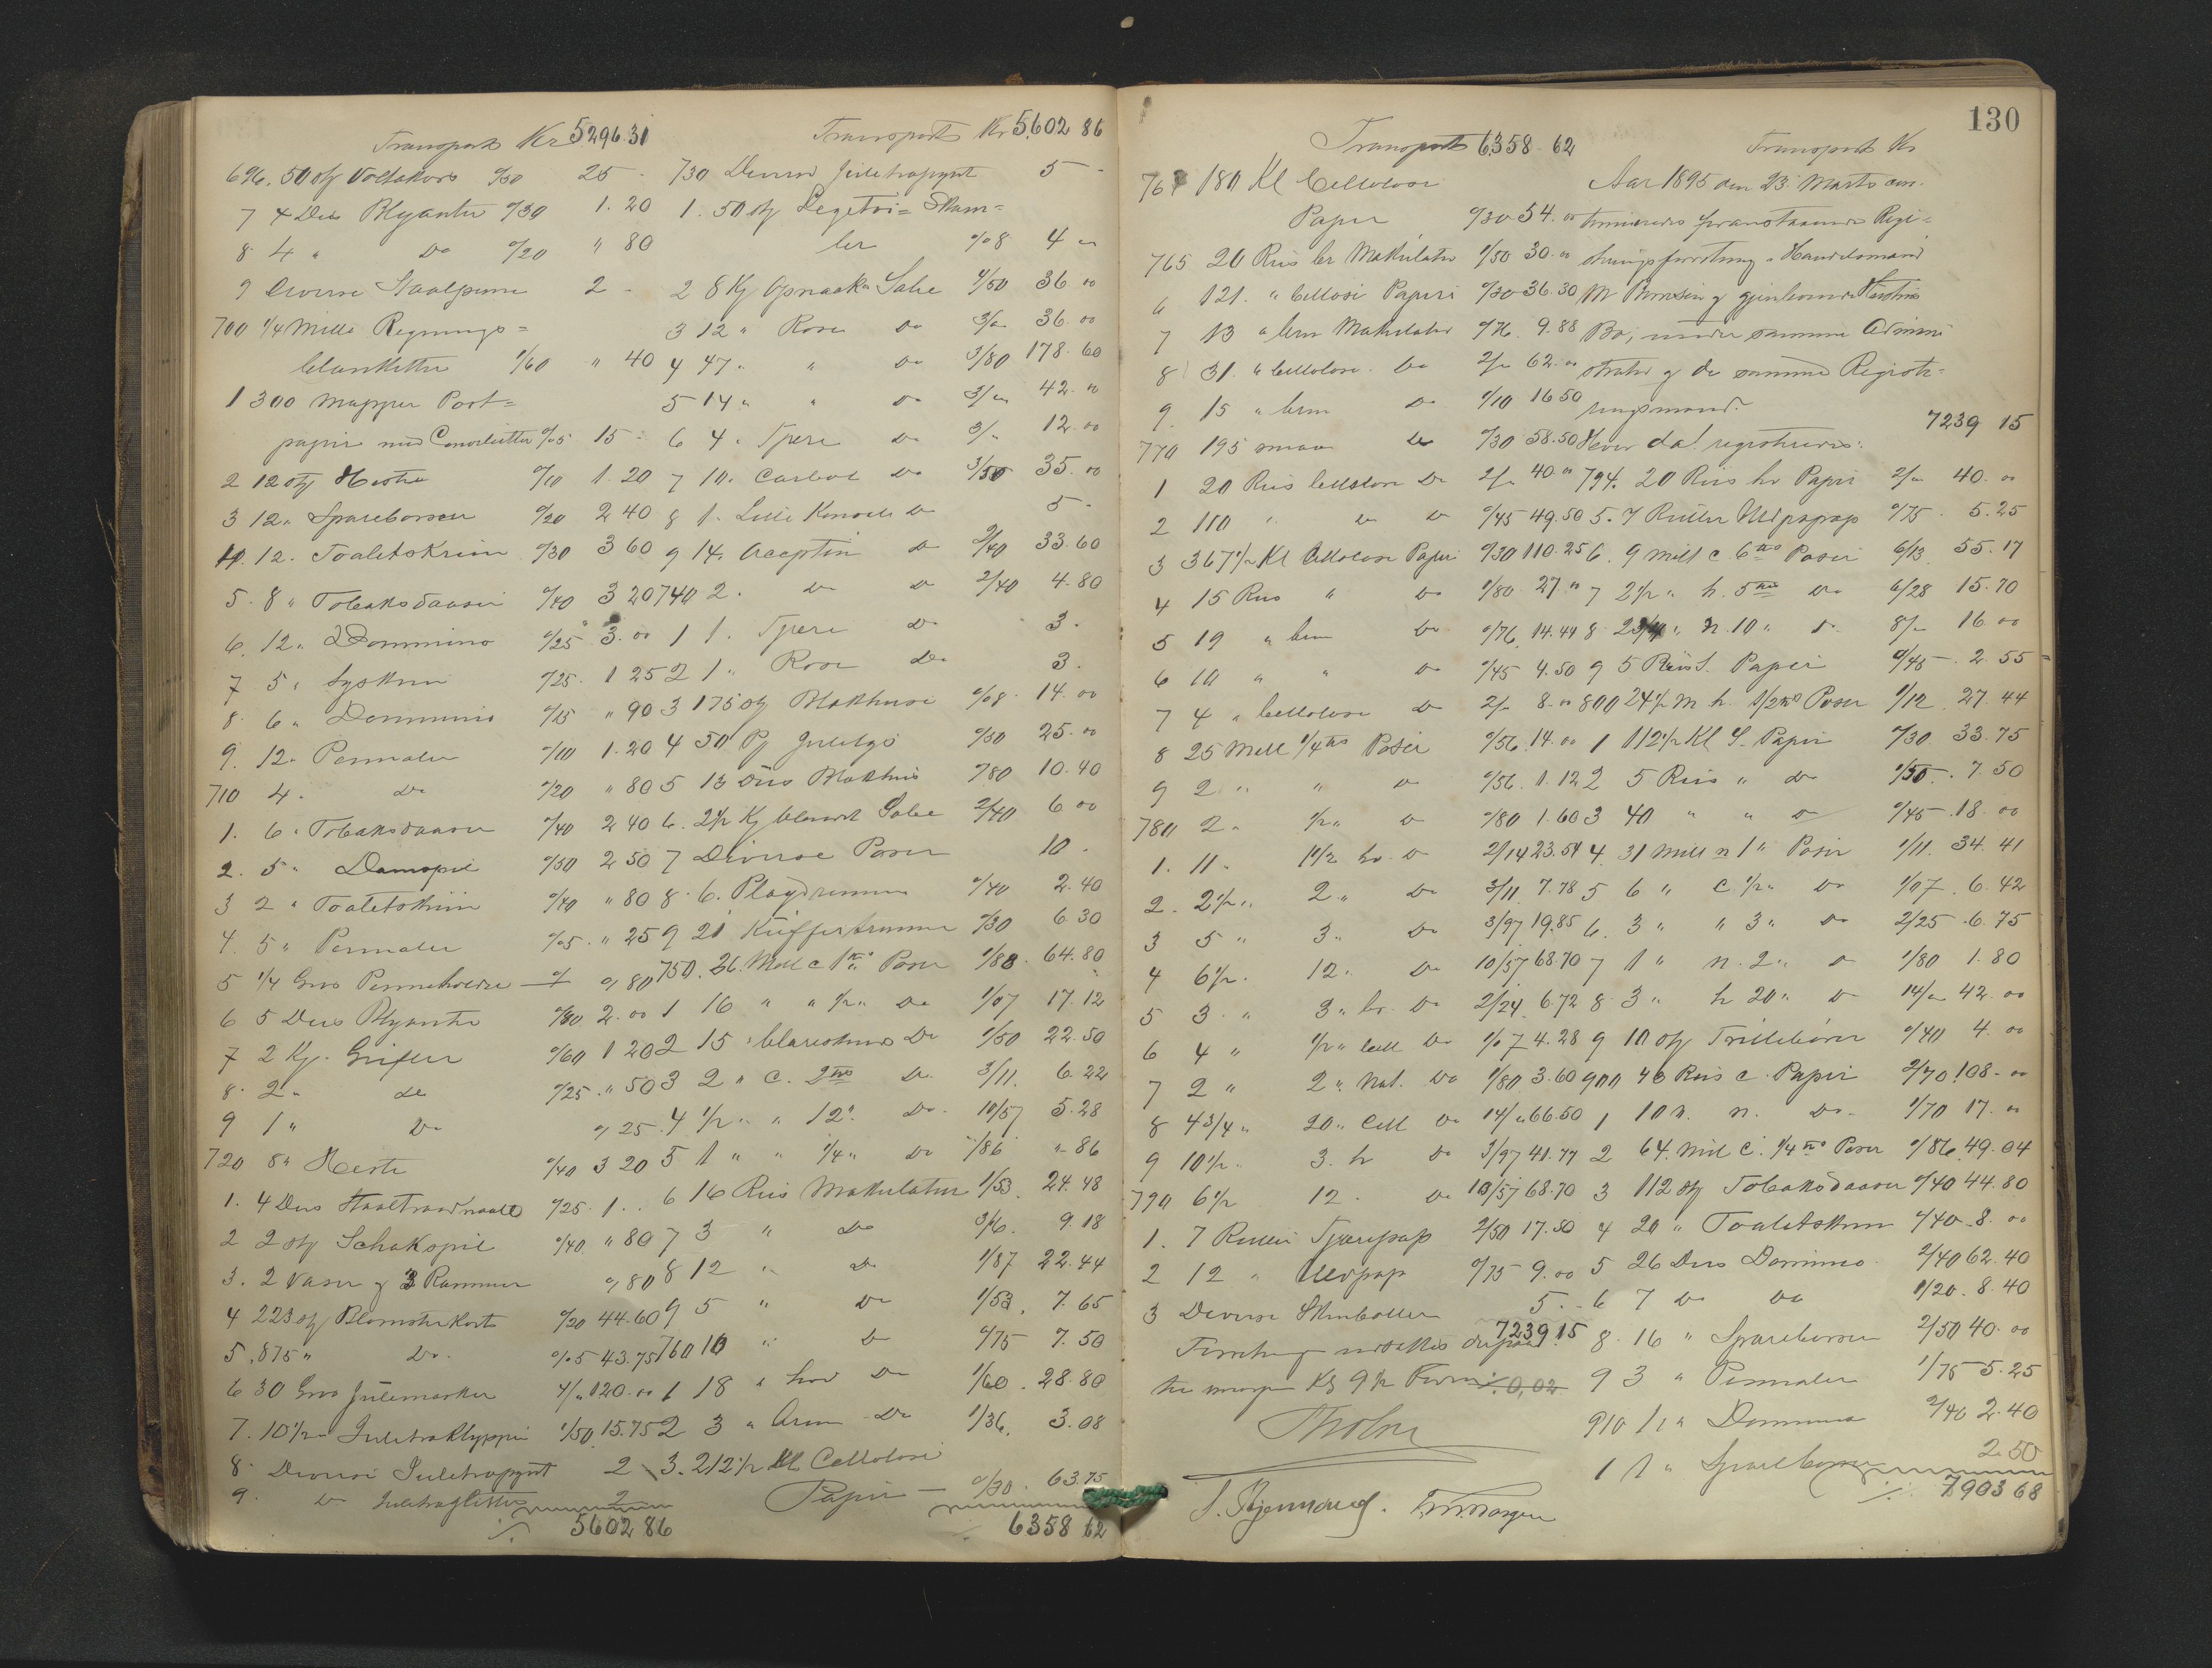 Transport Kr 5296.31
696. 50 stk Voltakors 0/50 25 -
7 4 Dus Blyanter 0/30 1.20
8 4 " Do 0/20 " 80
9 Diverse Staalpenne 2 -
700 1/4 Mille Regnings=
blanketter 1/60 " 40
1 300 Mapper Post=
papir med Convolutter 0/05 15 -
2 12 stk Heste 0/10 1.20
3 12 " Sparebørser 0/20 2 40
4. 12 - Toaletskrin 0/30 3 60
5. 8 " Tobaksdaaser 0/40 3 20
6. 12 " Dommino 0/25 3.00
7 5 " Syskrin 0/25. 1 25
8 6 " Dommino 0/15 " 90
9. 12 - Pennaler 0/10 1.20
710 4. do 0/20 " 80
1. 6 " Tobaksdaaser 0/40 2 40
2. 5 " Damspil 0/50 2 50
3 2 " Toaletskrin 0/40 " 80
4. 5 " Pennaler 0/05. " 25
5 1/4 Gros Penneholdre " 80
6 5 Dus Blyanter 0/80 2.00
7 2 Kg. Grifler 0/60 1 20
8. 2 " do 0/25. " 50
9 1 " Do " 25.
720 8 " Heste 0/40 3 20
1. 4 Dus Staaltraadnaale 0/25. 1..
2 2 stk Schakspil 0/40. " 80
3. 2 Vaser og 3 Rammer " 80
4 223 stk Blomsterkort 0/20 44.60
5. 875 " Do. 0/05 43.75
6 30 Gros Julemærker 4/" 120.00
7. 10 1/2 " Juletræklypper 1/50 15.75
8. Diverse Juletrepynt 2
9. do Juletræglitter 2
5602 86
Transport Kr 5.602 86
730 Diverse Juletræpynt 5 -
1. 50 stk Legetøi= Skam=
ler 0/08 4 "
2 8 Kg Opnaaka Sæbe 4/50 36 00
3 12 " Rosen do 3/" 36.00
4 47 " " Do 3/80 178.60
5 14 " " do 3/" 42."
6 4 " Tjære do 3/" 12.00
7 10. Carbol Do 3/50 35.00
8 1. Lille Do 5 -
9 14. do 2/40 33.60
740 2. do do 2/40 4.80
1 1. Tjære do 3.
2 1 " Rosen do 3.
3 175 stk Blækhuse 0/08. 14.00
4 50 Pk Julelys 0/50 25.00
5 13 Dus Blækhus 0/80 10.40
6. 2 1/2 Kg Sæbe 2/40 6 00
7 Diverse Poser 10 -
8. 6. Plaidremme 0/40 2.40
9 21 Kuffertremme 0/30 6 30
750. 36. Mill c 1 Poser 1/80. 64.80
1 16 " " 1/2 " Do 1/07 17.12
2 15 " Do 1/50 22.50
3 2 " c. 2 do 3/11. 6.22
4 1/2 " " 12. Do. 10/57 5.28
5 1 " " 1/4 " do "/86 "- 86
6 16 Riis Makulatur 1/53. 24.48
7 3 " do 3/6. 9.18
8 12 " do 1/87 22.44
9 5 " Do 1/53. 7.65
760 10 " Do 0/75 7.50
1 18 " hvid Do 1/60. 28.80
2 3 " Do 1/36. 3.08
3. 212 1/2 Kl Cellolose
Papir - 0/30. 63.75
6358 62
130
Transport 6358 - 62
764 180 Kl Cellolose
Papir 0/30 54."
765 20 Riis br Makulatur 1/50 30."
6 121. " Cellosi Papir 0/30 36.30
7 13 " brun Makulatur 0/76. 9.88
8 31. " Cellolose. Do 2/" 62."
9. 15 " brun Do 1/10 16 50
770 195 smaa do 0/30 58.50
1 20 Riis Cellolose Do 2/" 40."
2 110 " do do 0/45 49.50
3 367 1/2 Kl Cellolose Papir 0/30 110.25
4 15 Riis " Do 1/80 27."
5 19 " brun Do 0/76. 14.44
6 10 " " Do 0/45 4.50
7 4 " Cellolose do 2/" 8."
8 25 Mill 1/4 Poser 0/56. 14.00
9 2 " " do 0/56. 1.12
780 2 " 1/2 " do 0/80 1.60
1. 11. 1 1/2 hv. do 2/14 23.54
2. 2 1/2 " 2 " Do 3/11. 7.78
3 5 " 3 " Do 3/97 19.85
4 6 1/2. 12. Do 10/57 68.70
5 3. " 3 " br. Do 2/24. 6.72
6 4 " 1/2 " Cell Do 1/07 4.28
7 2 " 2 " Nat. Do 1/80 3.60
8 4 3/4 " 20 " Cell Do 14/" 66.50
9 10 1/2 " 3. h Do 3/97 41.77
790 6 1/2 12. Do 10/57 68.70
1. 7 Ruller Tjærepap 2/50 17.50
2 12 " Uldpap 0/75 9.00
3 Diverse 5.-
7239 15
Forretning
Kl 9 1/2 Form.
Tholm
Transport Kr
Aar 1895 den 23. Marts con-
tinueredes foranstaaende Regi=
streringsforretning i Handelsmand
Bo, under samme Admini
strator og de samme Registe=
ringsmænd.
7239 15
Hvor da registreredes:
794. 20 Riis hv Papir 2/" 40.00
5. 7 Ruller Uldpapap 0/75. 5.25
6. 9 Mill c. 6 Poser 6/13. 55.17
7 2 1/2 " h. 5 Do 6/28 15.70
8 2 " n. 10 " do 8/" 16 00
9 5 Riis S. Papir 0/45 - 2 55
800 24 1/2 M h. 1/2 Poser 1/12. 27.44
1 112 1/2 Kl S. Papir 0/30. 33.75
2 5 Riis " do 1/50 -. 7.50
3 40 " " do 0/45 - 18.00
4. 31 Mill n 1 " Poser 1/11. 34.41
5 6 " C. 1/2 " Do 1/07. 6.42
6. 3 " " 3 " Do 2/25 - 6.75
7 1 " n. 2 " do 1/80 1.80
8. 3 " h 20 " do 14/" 42.00
9 10 stk Trillebører 0/40 4.00
900 40 Riis c. Papir 2/70 108.00
1 10 n. n. Do. 1/70 17."
2 64. Mill C. 1/4 Poser 0/86. 49.04
3 112 stk Tobaksdaaser 0/40 44.80
4 20 " Toaletskrin 0/40 - 8.00
5 26 Dus Domino. 2/40 62.40
6 7 do do 1/20. 8.40
8. 16 " Sparebørser 2/50 40.00
9 3 " Pennaler 1/75 5.25
910 1 " Dommino 2/40 2.40
1 1 " Sparebørser 2.50
7903 68